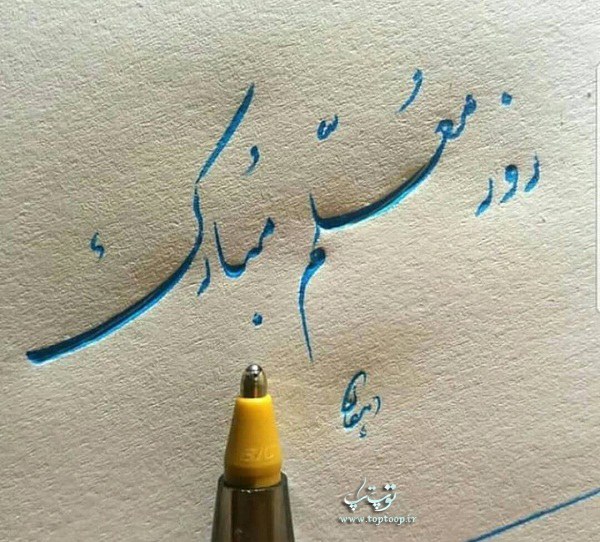 روز معلّم مُبارک
دهقان
BIC
توپتاپ
www.toptoop.ir